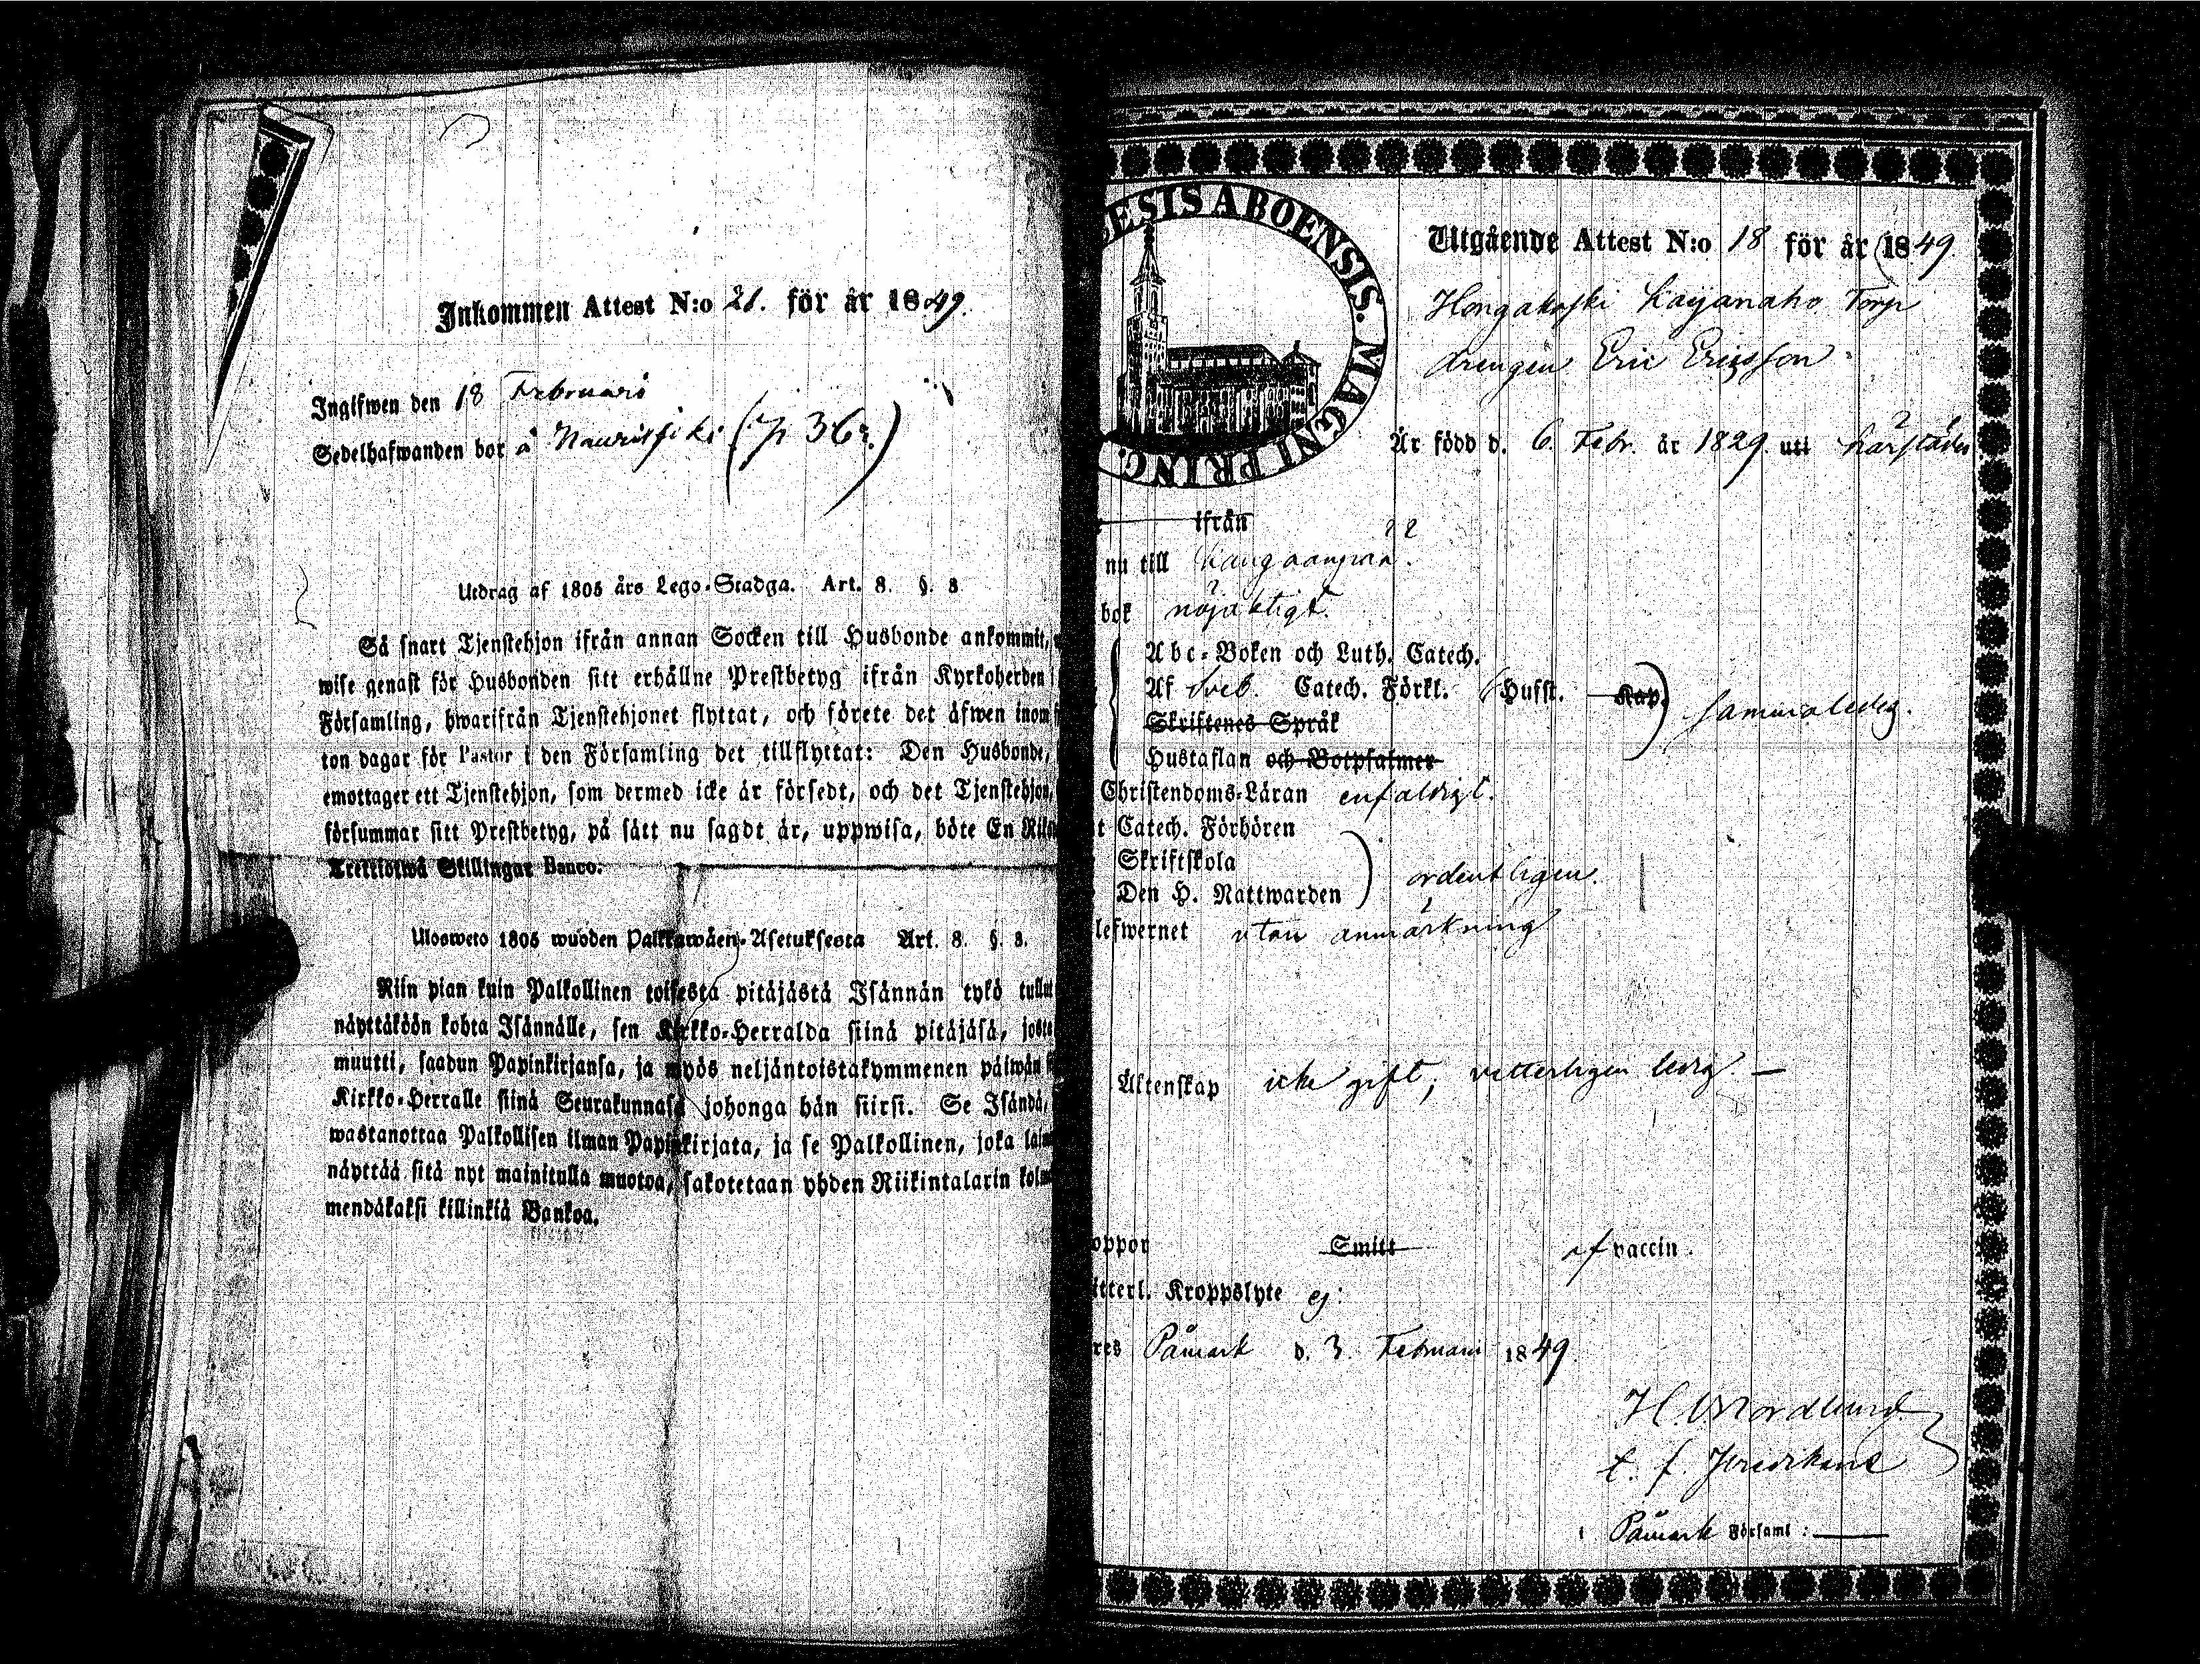 Inkommen Attest N:o 21. för år 1849.
Ingifwen den 18 Februari
Sedelhafwanden bor å (p 362.)
Utdrag af 1805 års Lego-Stadga. Art. 8. §. 8
Så snart Tjenstehjon ifrån annan Socken till Husbonde ankommit,
wise genast för Husbonden sitt erhållne Prestbetyg ifrån Kyrkoherden
Församling, hwarifrån Tjenstehjonet flyttat, och förete det äfwen inom
ton dagar för Pastor i den Församling det tillflyttat: Den Husbonde,
emottager ett Tjenstehjon, som dermed icke är försedt, och det Tjenstehjon,
försummar sitt Prestbetyg, på sätt nu sagdt är, uppwisa, böte En
Trettiotwå Skillingar Banco.
Ulosweto 1805 wuoden Palkkawäen-Asetuksesta Art. 8. §. 8.
Niin pian kuin Palkollinen toisesta pitäjästä Isännän tykö tullut
näyttäköön kohta Isännälle, sen Kirkko-Herralda siinä pitäjäsä, josta
muutti, saadun Papinkirjansa, ja myös neljäntoistakymmenen päiwän
Kirkko-Herralle siinä Seurakunnasa johonga hän siirsi. Se Isändä,
wastanottaa Palkollisen ilman Papinkirjata, ja se Palkollinen, joka
näyttää sitä nyt mainitulla muotoa, sakotetaan yhden Riikintalarin
mendäkaksi killinkiä Bankoa.
ESIS ABOENSIS. MAGNI PRINC.
Utgående Attest N:o 18 för år 1849.
Hongakoski Torp
drengen Eric Ericsson
Är född d. 6. Febr. år 1829. uti härstädes
ifrån
nu till Kangaanpää.
bok nöjaktigt.
Abc-Boken och Luth. Catech.
Af Sveb. Catech. Förkl. Hufst. Kap.
sammaledes.
Skriftenes Språk
Hustaflan och Botpsalmer
Christendoms-Läran enfaldigt.
t Catech. Förhören
Skriftskola
ordentligen.
Den H. Nattwarden
lefwernet utan anmärkning
Äktenskap icke gift, vitterligen ledig —
oppor Smitt af vaccin.
itterl. Kroppslyte ej.
res Påmark d. 3. Februari 1849.
H. Nordlund
t. f. Predikant
i Påmark Församl: